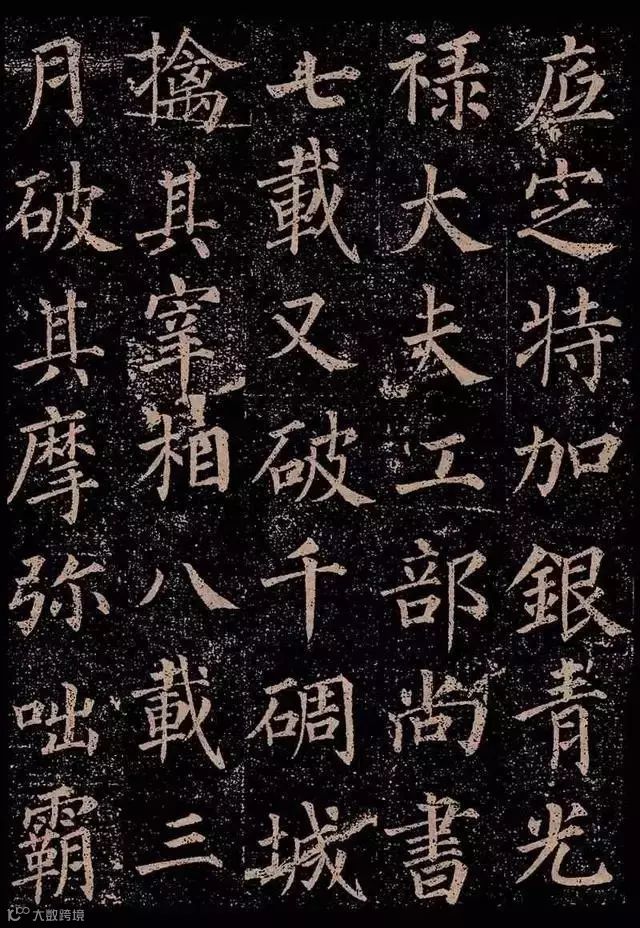 底定特加銀青光
禄大夫工部尚書
七載又破千碉城
擒其宰相八載三
月破其摩弥咄霸
大数跨境